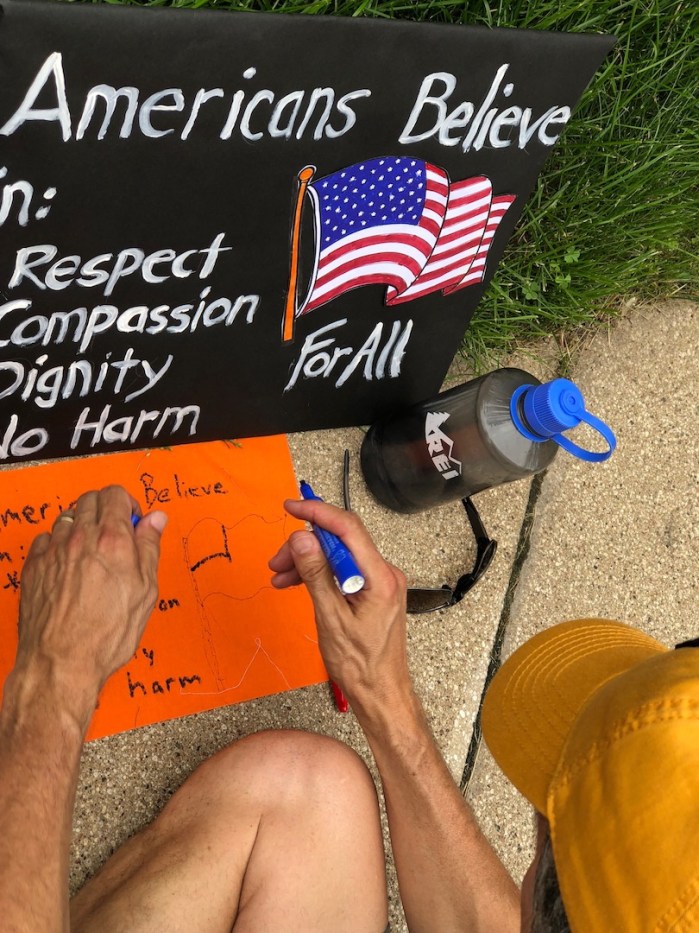 Americans Believe
in:
Respect
Compassion
Dignity
No Harm
For All
REI
meri Believe
n:
on
y
harm